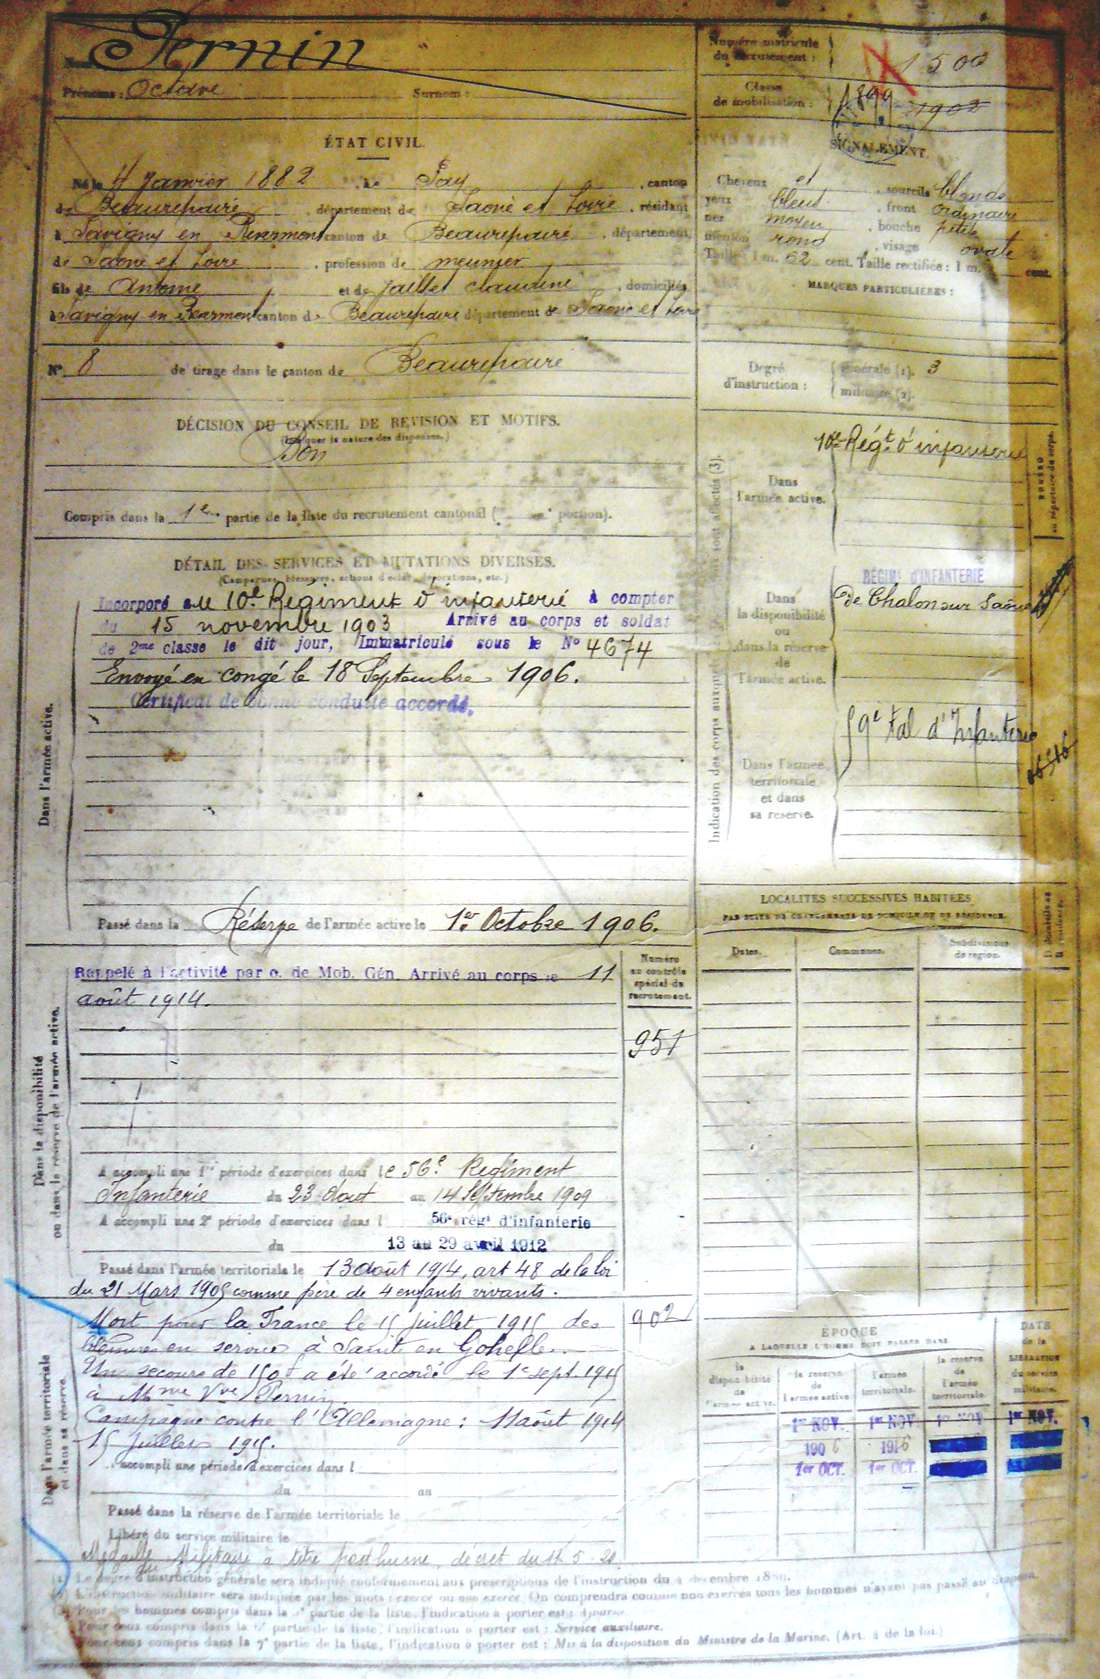 Nom : Pernin
Prénoms : Octave Surnom :
Numéro matricule du recrutement : 1500
Classe de mobilisation : 1899 1902
ÉTAT CIVIL.
Né le 4 Janvier 1882, à Sav, canton
de Beaurepaire, département de Saône et Loire, résidant
à Savigny en Revermont canton de Beaurepaire, département
de Saône et Loire, profession de meunier
fils de Antoine et de Jaillet Claudine, domiciliés
à Savigny en Revermont canton de Beaurepaire département de Saône et Loire
N° 8 de tirage dans le canton de Beaurepaire
SIGNALEMENT.
Cheveux et sourcils blonds
yeux bleus, front ordinaire
nez moyen, bouche petite
menton rond, visage ovale
Taille : 1 m. 62 cent. Taille rectifiée : 1 m. cent.
MARQUES PARTICULIÈRES :
Degré d'instruction : générale (1). 3
militaire (2).
DÉCISION DU CONSEIL DE RÉVISION ET MOTIFS.
(Indiquer la nature des dispenses.)
Bon
Compris dans la 1re partie de la liste du recrutement cantonal ( portion).
DÉTAIL DES SERVICES ET MUTATIONS DIVERSES.
(Campagnes, blessures, actions d'éclat, décorations, etc.)
Dans l'armée active.
Incorporé au 10e Régiment d'infanterie à compter
du 15 novembre 1903 Arrivé au corps et soldat
de 2me classe le dit jour, Immatriculé sous le N° 4674
Envoyé en congé le 18 Septembre 1906.
Certificat de bonne conduite accordé.
Passé dans la Réserve de l'armée active le 1er Octobre 1906.
Indication des corps auxquels les jeunes gens sont affectés (3).
Dans l'armée active.
10e Régt d'infanterie
Dans la disponibilité ou dans la réserve de l'armée active.
RÉGIMt D'INFANTERIE
de Chalon sur Saône
Dans l'armée territoriale et dans sa réserve.
59e tal d'Infanterie
NUMÉRO au répertoire du corps.
LOCALITÉS SUCCESSIVES HABITÉES
PAR SUITE DE CHANGEMENTS DE DOMICILE OU DE RÉSIDENCE.
Dates. Communes. Subdivisions de région.
Dans la disponibilité ou dans la réserve de l'armée active.
Numéro au contrôle spécial du recrutement.
951
Rappelé à l'activité par o. de Mob. Gén. Arrivé au corps le 11
août 1914.
A accompli une 1re période d'exercices dans le 56e Régiment
Infanterie du 23 Aout au 14 Septembre 1909
A accompli une 2e période d'exercices dans l 56e régt d'infanterie
du 13 au 29 avril 1912
Passé dans l'armée territoriale le 13 août 1914, art 48 de la loi
du 21 Mars 1905 comme père de 4 enfants vivants.
Dans l'armée territoriale et dans sa réserve.
902
Mort pour la France le 15 juillet 1915 des
blessures en service à Sains en Gohelle.
Un secours de 150f a été accordé le 1e sept. 1915
à Mme Vve Pernin
Campagne contre l'Allemagne : 11 août 1914
15 Juillet 1915.
A accompli une période d'exercices dans l
du au
Passé dans la réserve de l'armée territoriale le
Libéré du service militaire le
Médaille Militaire à titre posthume, decret du
ÉPOQUE
A LAQUELLE L'HOMME DOIT PASSER DANS
la disponibilité de l'armée active. la réserve de l'armée active. l'armée territoriale. la réserve de l'armée territoriale.
DATE de la LIBÉRATION du service militaire.
1er NOV. 1er NOV 1er NOV 1er NOV.
1906 1916
1er OCT. 1er OCT.
(1) Le degré d'instruction générale sera indiqué conformément aux prescriptions de l'instruction du
(2) L'instruction militaire sera indiquée par les mots : exercé ou non exercé. On comprendra comme non exercés tous les hommes n'ayant pas passé au drapeau.
(3) Pour les hommes compris dans la partie de la liste, l'indication à porter est : Ajourné.
Pour ceux compris dans la partie de la liste, l'indication à porter est : Service auxiliaire.
Pour ceux compris dans la 7e partie de la liste, l'indication à porter est : Mis à la disposition du Ministre de la Marine. (Art. 4 de la loi.)